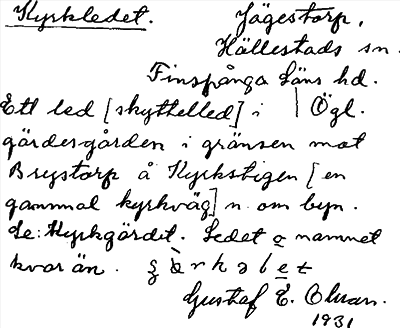 Kyrkledet. Jägestorp,
Hällestads sn.
Finspånga läns hd.
Ett led [skyttelled] i | Ögl.
gärdesgården i gränsen mot
Brystorp å Kyrkstigen [en
gammal kyrkväg] n. om byn.
Se: Kyrkgärdet. Ledet o namnet
kvar än.
Gustaf E. Olsson.
1931